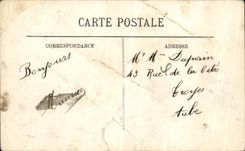 CARTE POSTALE
CORRESPONDANCE
Bonjours
ADRESSE
Mr Mme Duperin
43 Rue de la Cité
Troyes
Aube